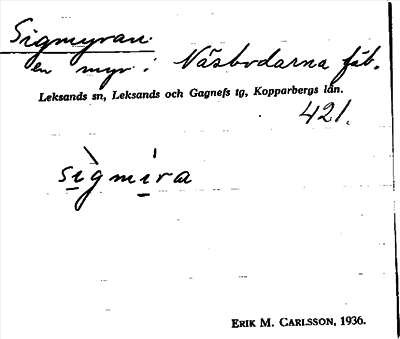 Sigmyran.
en myr i Näsbodarna fäb.
Leksands sn, Leksands och Gagnefs tg, Kopparbergs län.
421.
sìgmíra
ERIK M. CARLSSON, 1936.